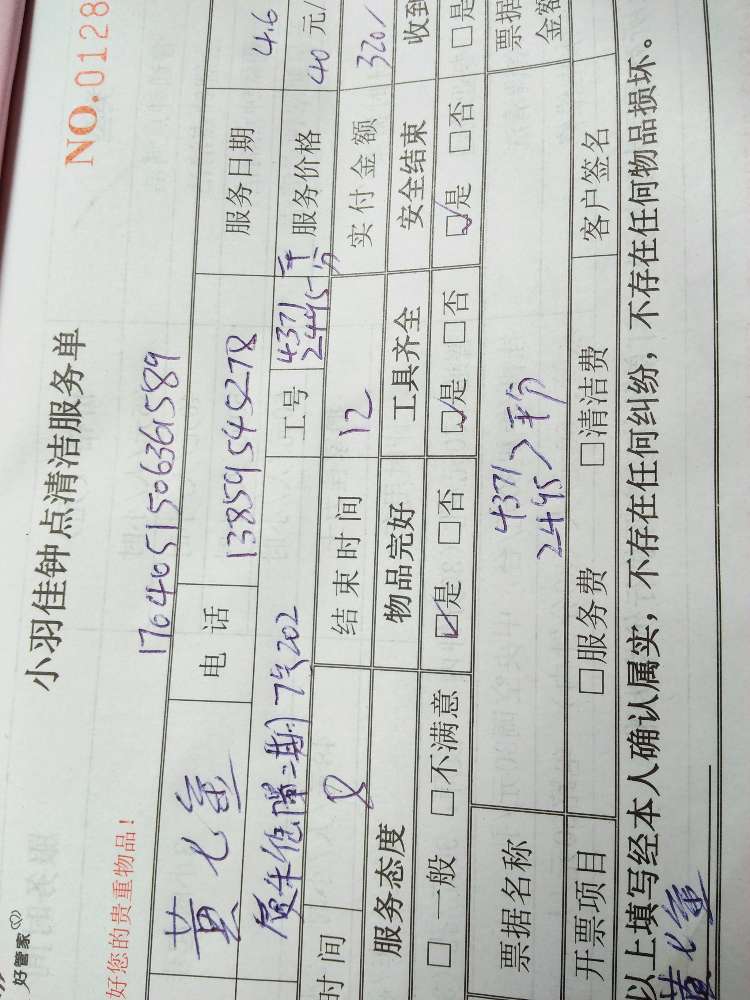 好管家
小羽佳钟点清洁服务单
NO.0128
好您的贵重物品！
17040515063361589
黄 电话 13859545278 服务日期 4.6
二期7号202 工号 4371 2495 平分 服务价格 40元/
时间 8 结束时间 12 实付金额 320/
服务态度 物品完好 工具齐全 安全结束 收到
□一般 □不满意 ☑是 □否 ☑是 □否 ☑是 □否 □是
票据名称 4371 2495 平分 票据金额
开票项目 □服务费 □清洁费 客户签名
以上填写经本人确认属实，不存在任何纠纷，不存在任何物品损坏。
黄